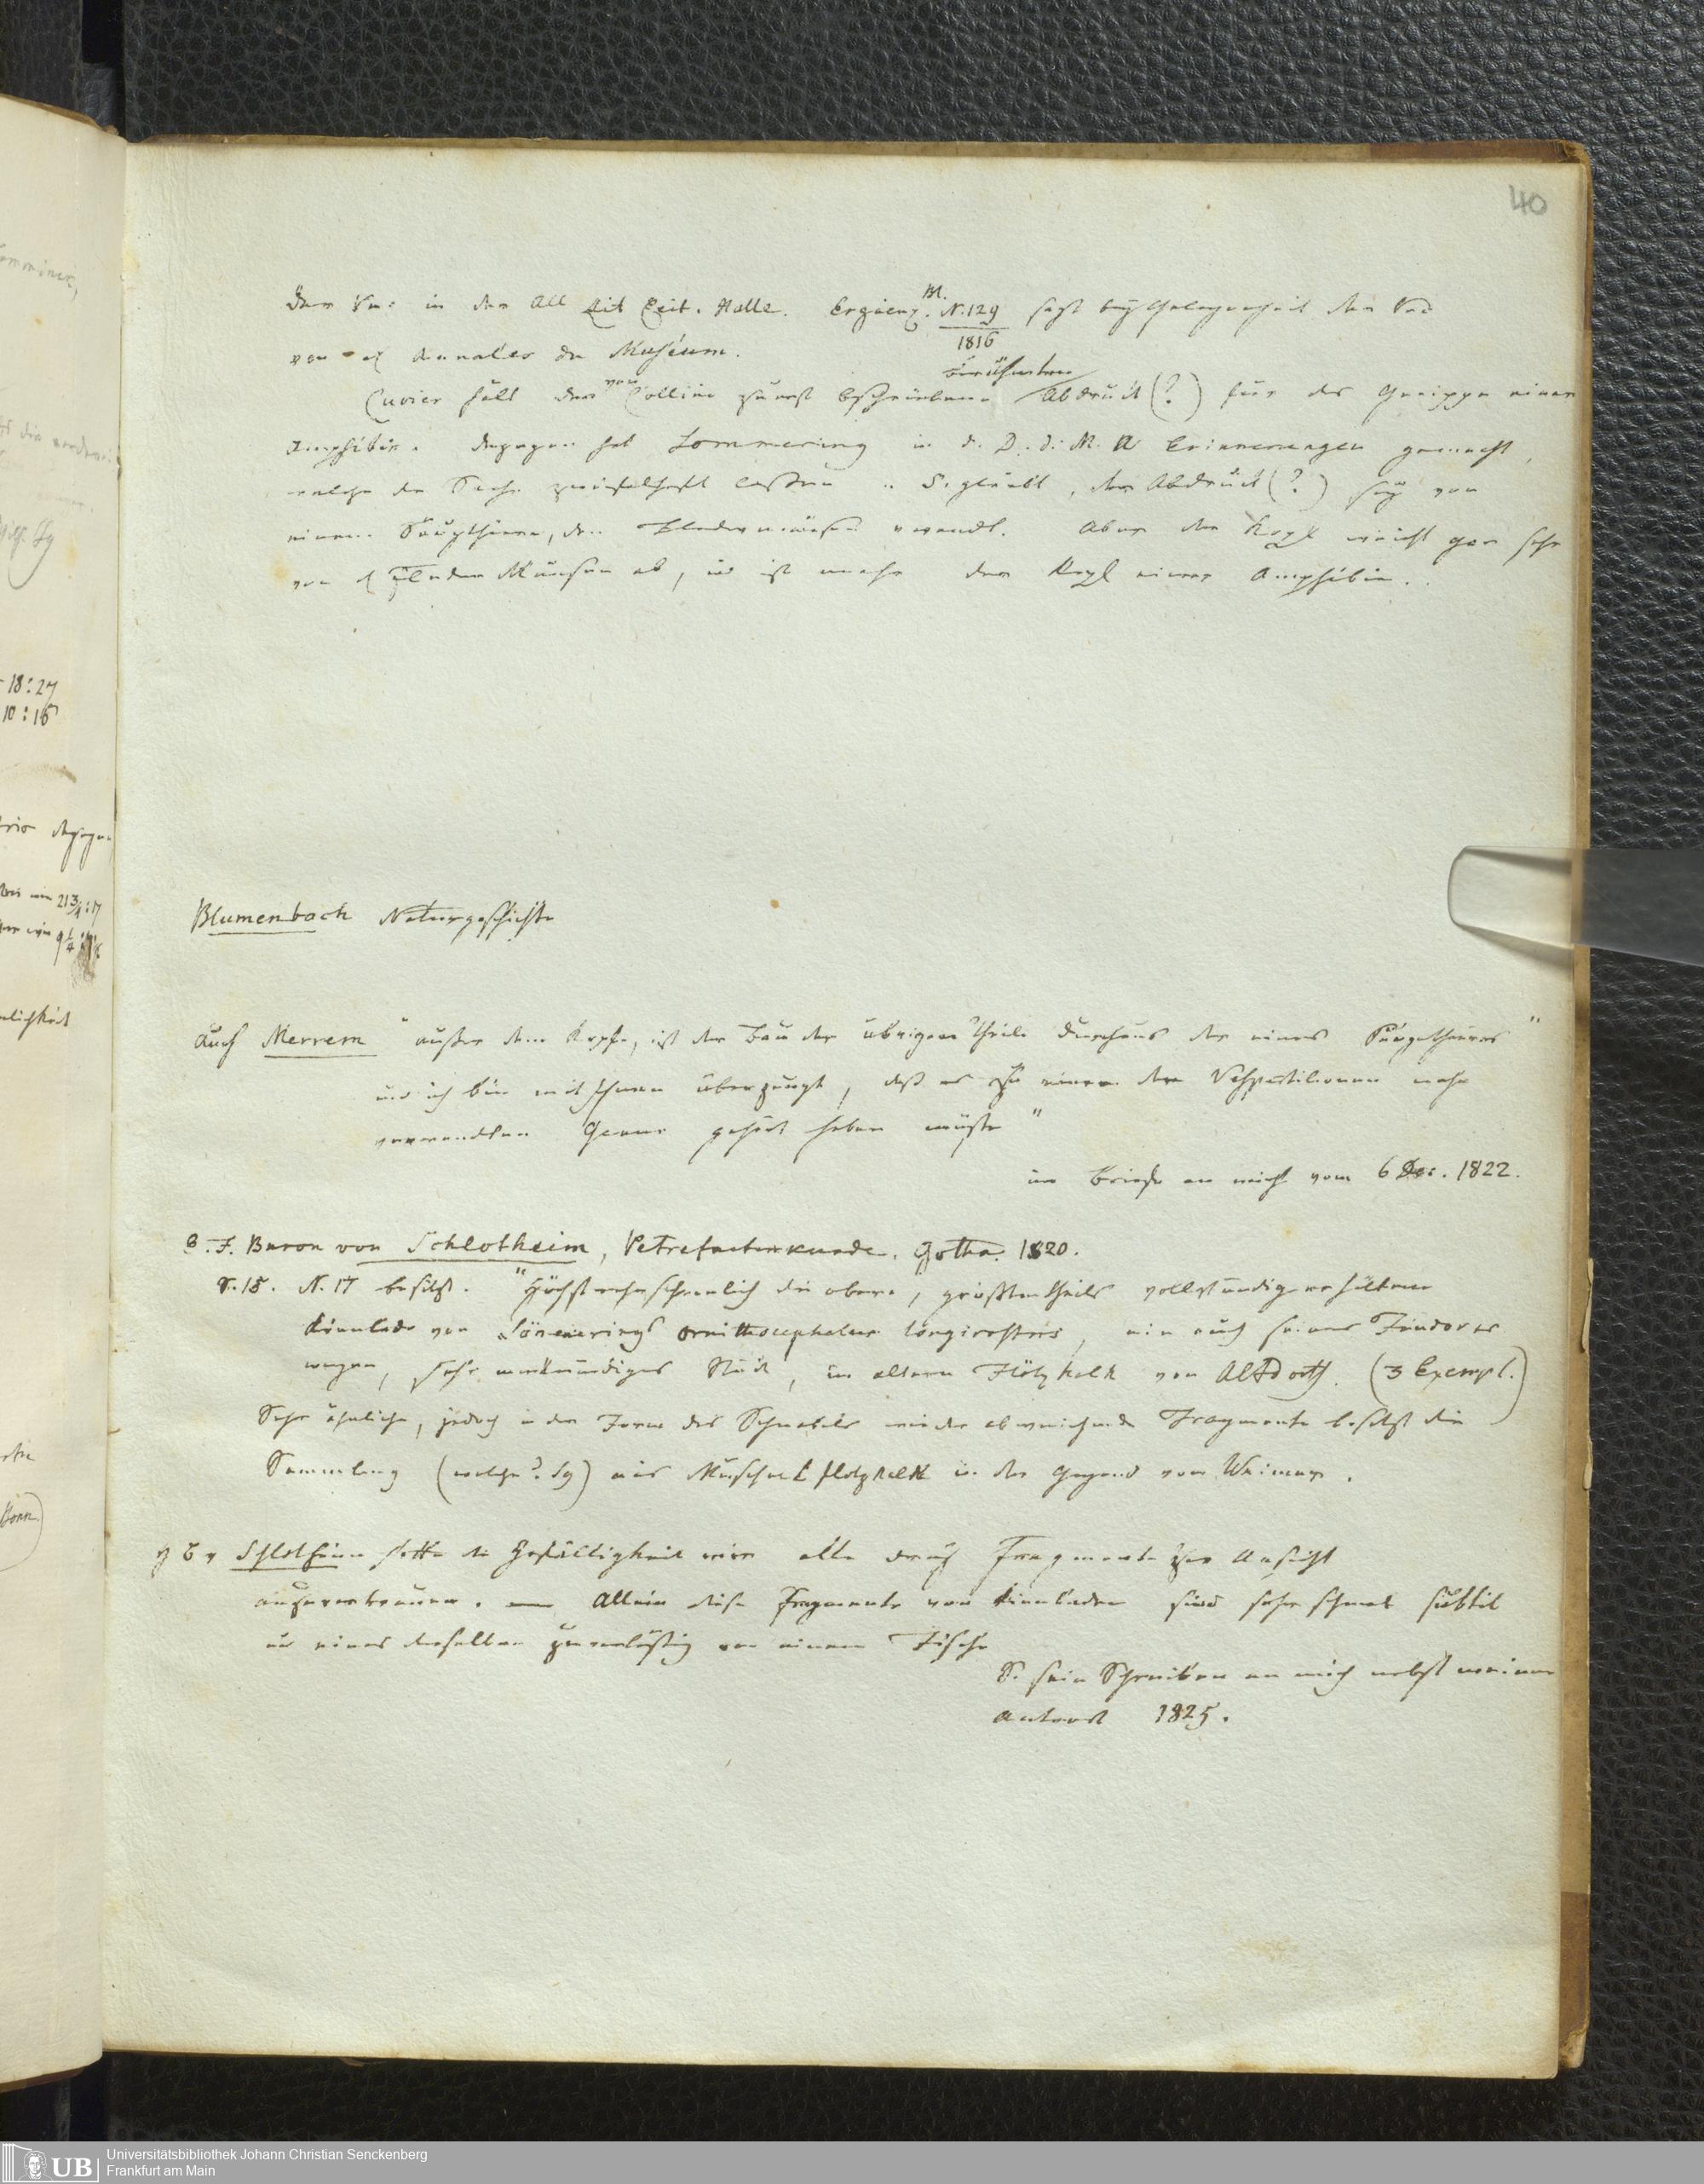 40
Der Rec in der All Lit Zeit. Halle. Ergaenz. Bl. N. 129 1816 sagt bey Gelegenheit der Rec
von den Annales du Muséum.
Cuvier hält den von Collini zuerst beschriebenen berühmten Abdruck (?) für das Gerippe einer
Amphibie. dagegen hat Sömmering in d. D. d. M. A Erinnerungen gemacht,
welche die Sache zweifelhaft lassen. S. glaubt, der Abdruck (?) sey von
einem Säugthiere, den Fledermäusen verwandt. Aber der Kopf weicht gar sehr
von den Fledermäusen ab, und ist mehr der Kopf einer Amphibie.
Blumenbach Naturgeschichte
Auch Merrem "außer dem Kopfe, ist der Bau der übrigen Theile durchaus der eines Säugethieres"
und ich bin mit Ihnen überzeugt, daß es zu einem den Vespertilionen nahe
verwandten Genus gehört haben müsse"
im Briefe an mich vom 6 Dec. 1822.
E. F. Baron von Schlotheim, Petrefactenkunde. Gotha. 1820.
S. 15. N. 17 besitzt. "Höchstwahrscheinlich die obere, größtentheils vollständig erhaltene
Kinnlade von Sömmerings Ornithocephalus longirostris, ein auch seines Fundortes
wegen, sehr merkwürdiges Stück, im ältern Flötzkalk von Altdorf. (3 Exempl.)
Sehr ähnliche, jedoch in der Form des Schnabels wieder abweichende Fragmente besitzt die
Sammlung (welche? Sg) aus Muschelflötzkalk in der Gegend von Weimar.
Schlotheim hatte die Gefälligkeit mir alle drey Fragmente zur Ansicht
anzuvertrauen. Allein diese Fragmente von Kinnladen sind sehr schmal subtil
und eines derselben zuverläßig von einem Fische
S. sein Schreiben an mich nebst meiner
Antwort 1825.
18:27
10:16
21 3/4:17
Bonn.)
UB
Universitätsbibliothek Johann Christian Senckenberg
Frankfurt am Main